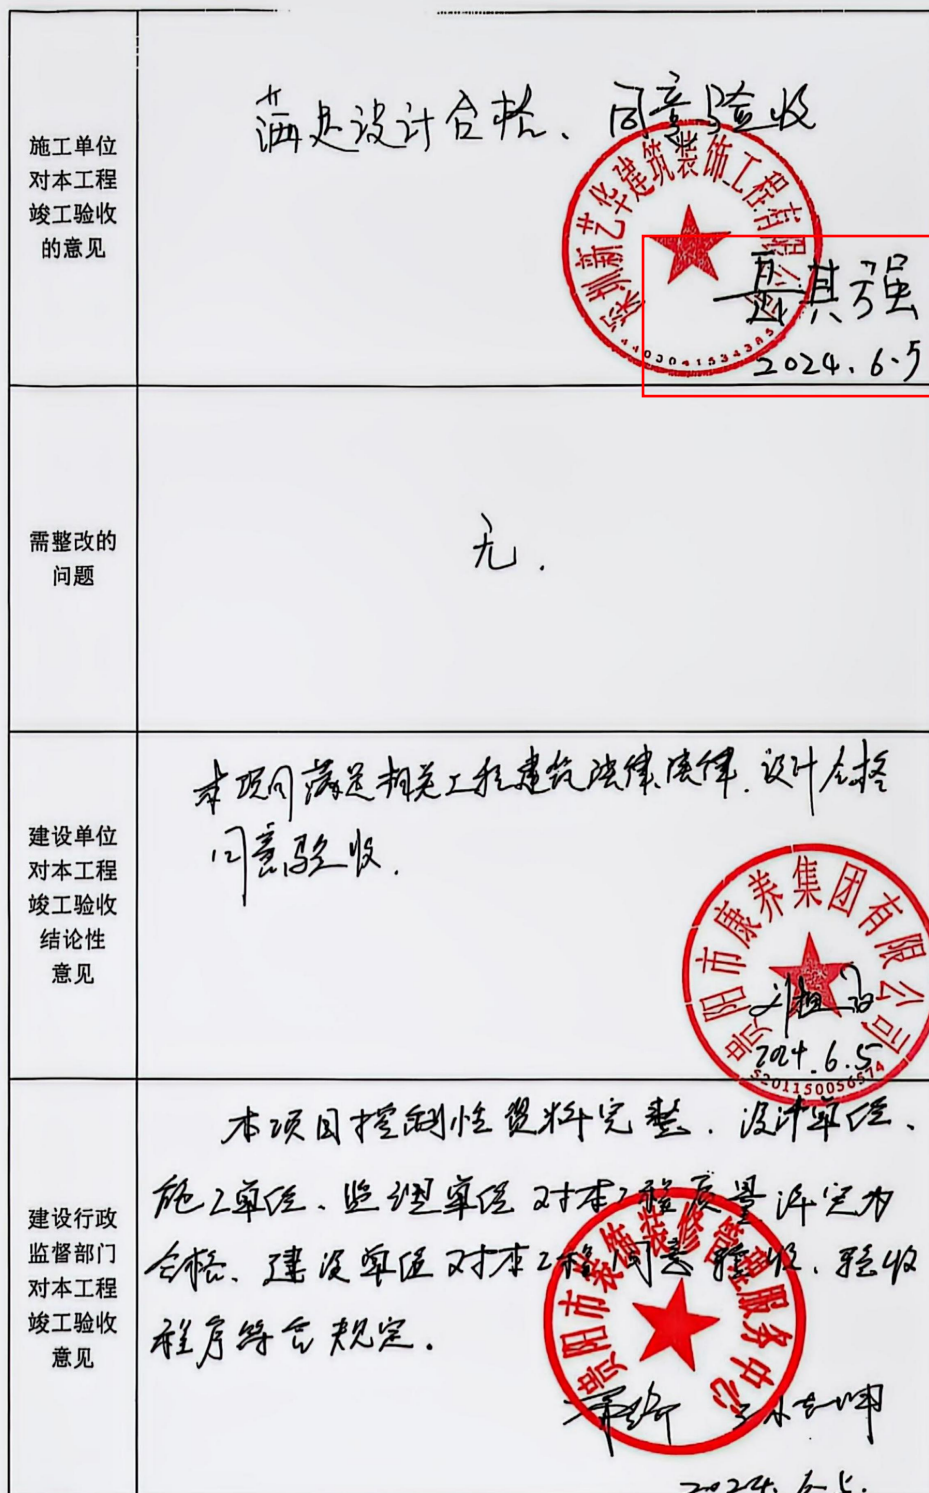 施工单位
对本工程
竣工验收
的意见
满足设计合格、同意验收
深圳新艺华建筑装饰工程有限公司
4403041534385
聂其强
2024.6.5
需整改的
问题
无.
建设单位
对本工程
竣工验收
结论性
意见
本项目满足相关工程建筑法律法律.设计合格
同意验收.
贵阳市康养集团有限公司
2024.6.5
5201150056574
建设行政
监督部门
对本工程
竣工验收
意见
本项目控制性资料完整.设计单位、
施工单位、监理单位对本工程质量评定为
合格、建设单位对本工程同意验收、验收
程序符合规定.
贵阳市装饰装修管理服务中心
2024.6.5.